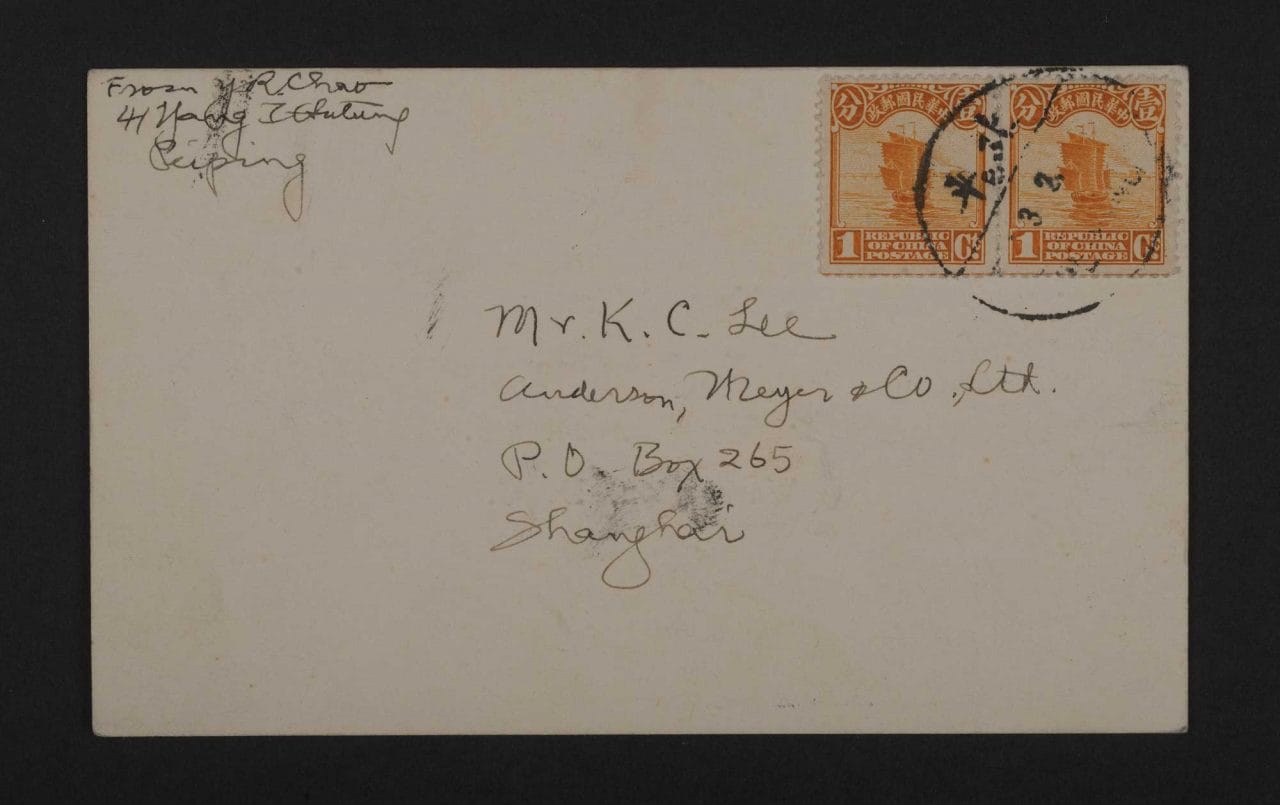 From Y. R. Chao
41 Yang I Hutung
Peiping
分 中華民國郵政 壹
1 REPUBLIC OF CHINA POSTAGE Ct
分 中華民國郵政 壹
1 REPUBLIC OF CHINA POSTAGE Ct
北平
Mr. K. C. Lee
Anderson, Meyer & Co., Ltd.
P. O. Box 265
Shanghai